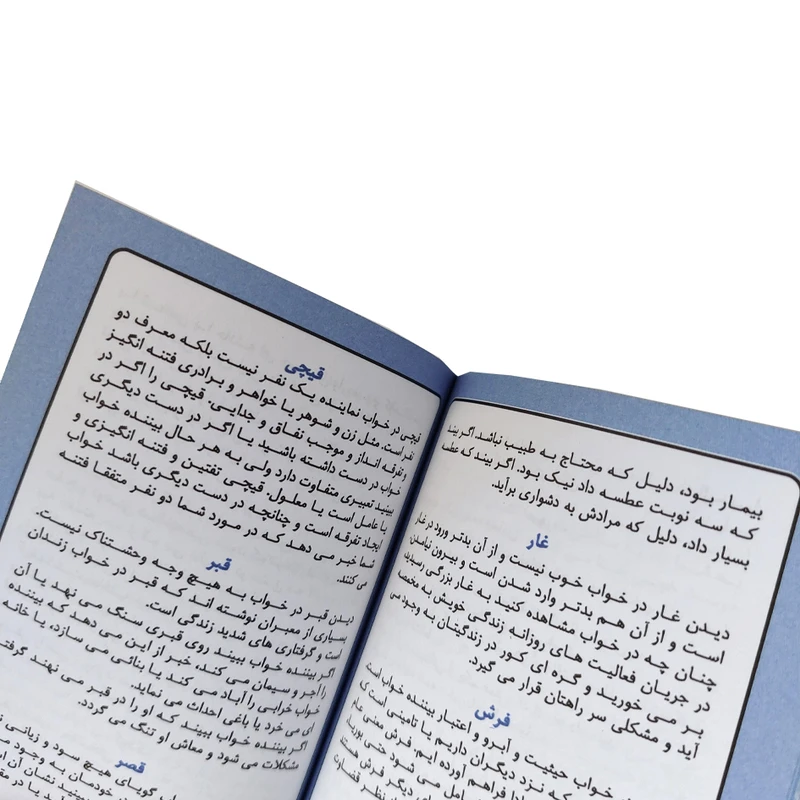 بیمار بود، دلیل که محتاج به طبیب نباشد. اگر بیند
که سه نوبت عطسه داد نیک بود. اگر بیند که عطسه
بسیار داد، دلیل که مرادش به دشواری برآید.
غار
دیدن غار در خواب خوب نیست و از آن بدتر ورود در غار
است و از آن هم بدتر وارد شدن است و بیرون نیامدن
چنان چه در خواب مشاهده کنید به غار بزرگی رسیدید
در جریان فعالیت های روزانه زندگی خویش به مخمصه
بر می خورید و گره ای کور در زندگیتان به وجود می
آید و مشکلی سر راهتان قرار می گیرد.
فرش
خواب حیثیت و آبرو و اعتبار بیننده خواب است.
که نزد دیگران داریم یا تامینی است که
فراهم آورده ایم. فرش معنی عام
شامل می شود حتی بوریا.
های دیگر فرش هستند
نظر قضاوت
قیچی
قیچی در خواب نماینده یک نفر نیست بلکه معرف دو
نفر است. مثل زن و شوهر یا خواهر و برادری فتنه انگیز
و تفرقه انداز و موجب نفاق و جدایی. قیچی را اگر در
خواب در دست داشته باشید یا اگر در دست دیگری
ببینید تعبیری متفاوت دارد ولی به هر حال بیننده خواب
یا عامل است یا معلول. قیچی تفتین و فتنه انگیزی و
ایجاد تفرقه است و چنانچه در دست دیگری باشد خواب
شما خبر می دهد که در مورد شما دو نفر متفقا فتنه
می کنند.
قبر
دیدن قبر در خواب به هیچ وجه وحشتناک نیست.
بسیاری از معبران نوشته اند که قبر در خواب زندان
است و گرفتاری های شدید زندگی است.
اگر بیننده خواب ببیند روی قبری سنگ می نهد یا آن
را آجر و سیمان می کند، خبر از این می دهد که بیننده
خواب خرابی را آباد می کند یا بنائی می سازد، یا خانه
ای می خرد یا باغی احداث می نماید.
اگر بیننده خواب ببیند که او را در قبر می نهند گرفتار
مشکلات می شود و معاش او تنگ می گردد.
قصر
خواب گویای هیچ سود و زیانی
خودمان به وجود
ببینید نشان آن